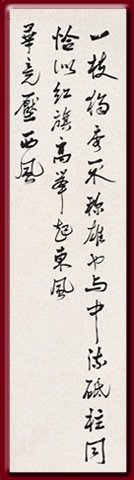 一枝獨秀不稱雄也与中流砥柱同
恰似紅旗高舉起東風
畢竟壓西風